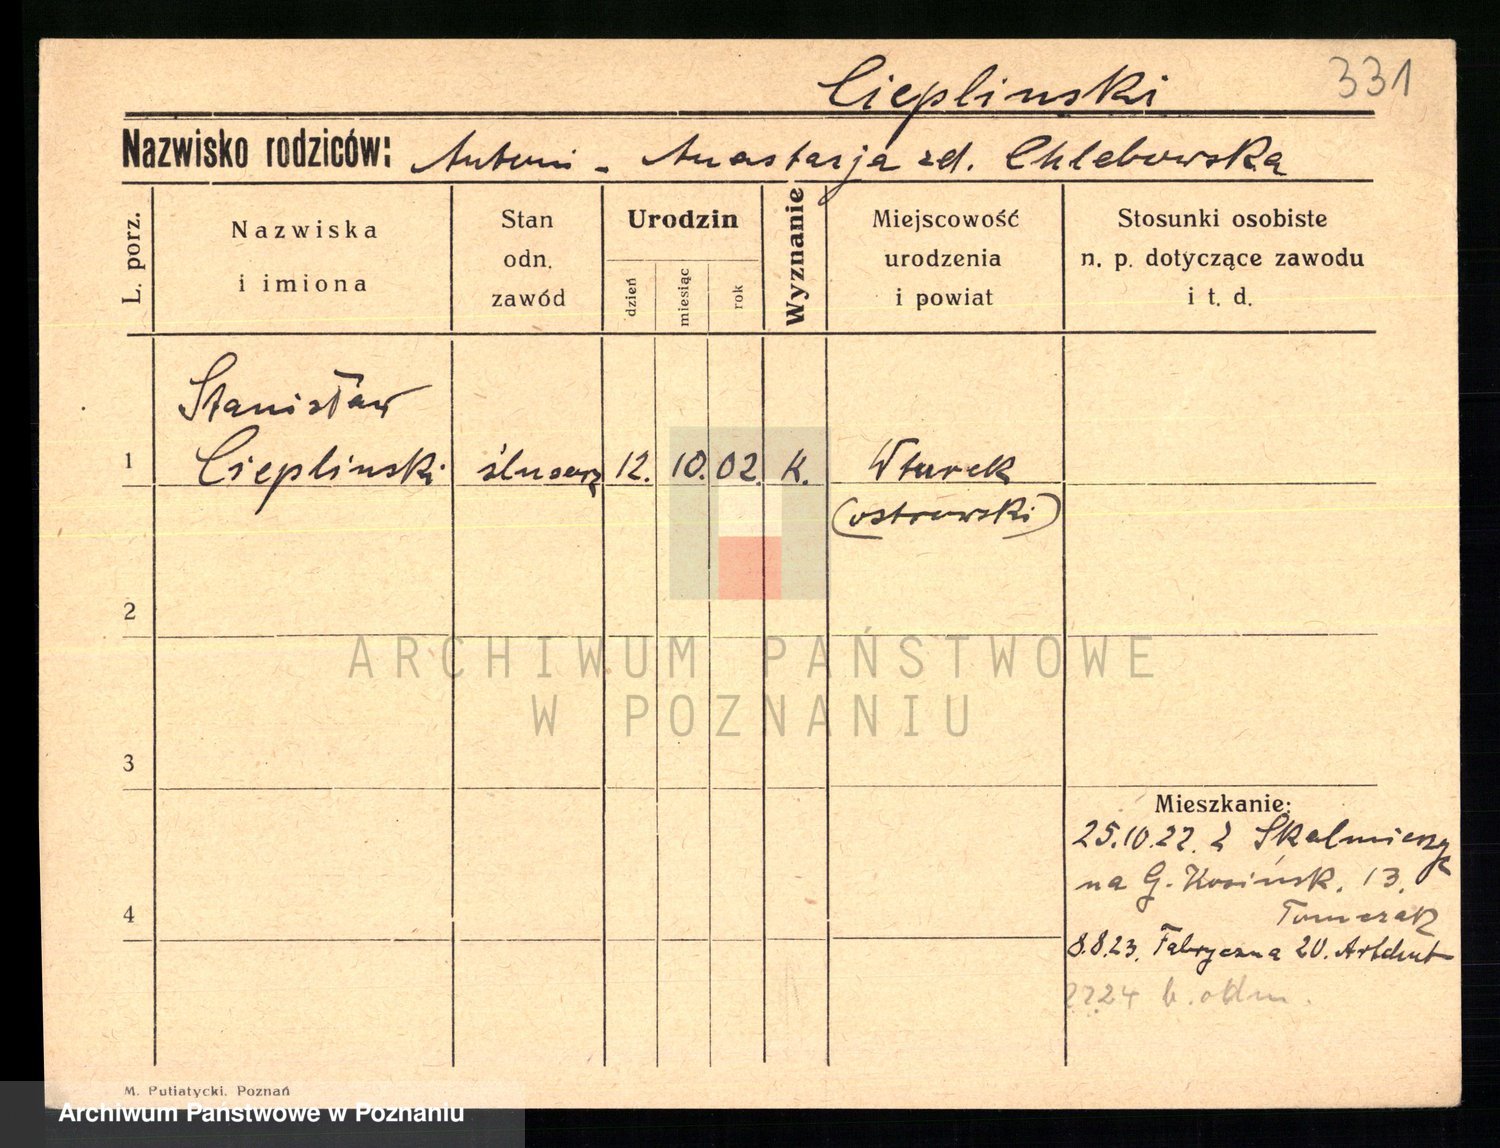 331
Cieplinski
Nazwisko rodziców: Antoni - Anastazja zd. Chlebowska
L. porz.
Nazwiska
i imiona
Stan
odn.
zawód
Urodzin
dzień
miesiąc
rok
Wyznanie
Miejscowość
urodzenia
i powiat
Stosunki osobiste
n. p. dotyczące zawodu
i t. d.
Stanisław
1 Cieplinski ślusarz 12. 10. 02. K. Wturek
(ostrowski)
2
ARCHIWUM PAŃSTWOWE
W POZNANIU
3
Mieszkanie:
25.10.22. z Skalmierzyc
na G. 13.
4
Tomczak
8.8.23. Fabryczna 20.
b. odm.
M. Putiatycki. Poznań
Archiwum Państwowe w Poznaniu